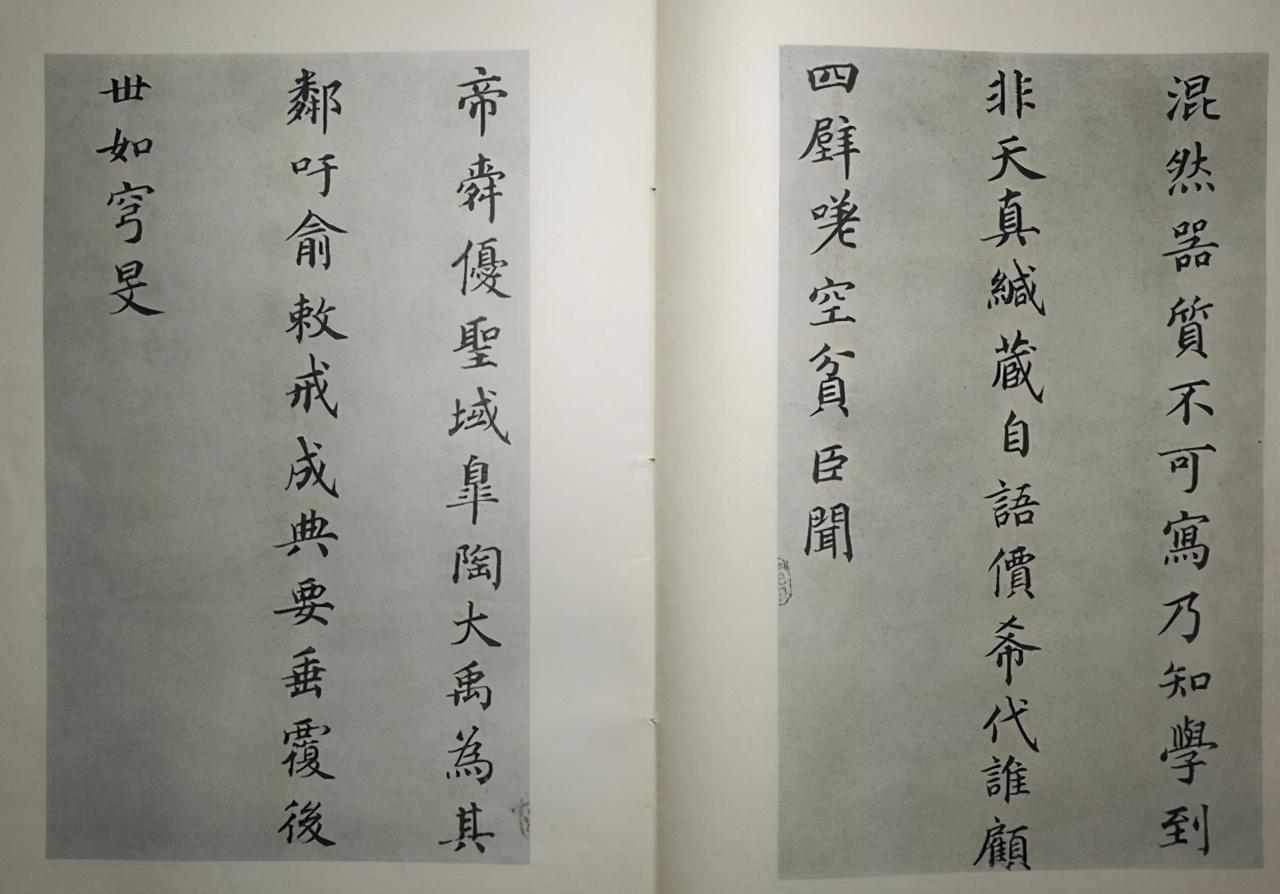 混然器質不可寫乃知學到
非天真緘蔵自語價希代誰顧
四壁嘆空貧臣聞
帝舜優聖域臯陶大禹為其
鄰吁俞敕戒成典要垂覆後
世如穹旻